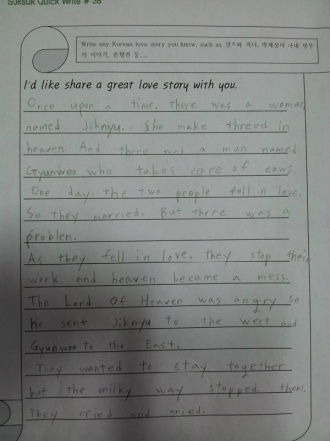 Suksuk Quick Write # 3B
Write any Korean love story you know, such as 견우와 직녀, 박제상의 아내 망부
석 이야기, 춘향전 등....
I'd like share a great love story with you.
Once upon a time, there was a woman
named Jiknyu. She make thread in
heaven. And there was a man named
Gyunwoo who takes care of cows.
One day, the two people fell in love.
So they married. But there was a
problem.
As they fell in love, they stop their
work and heaven became a mess.
The Lord Of Heaven was angry so
he sent Jiknyu to the west and
Gyunwoo to the East.
They wanted to stay together
but the milky way stopped them.
They cried and cried.